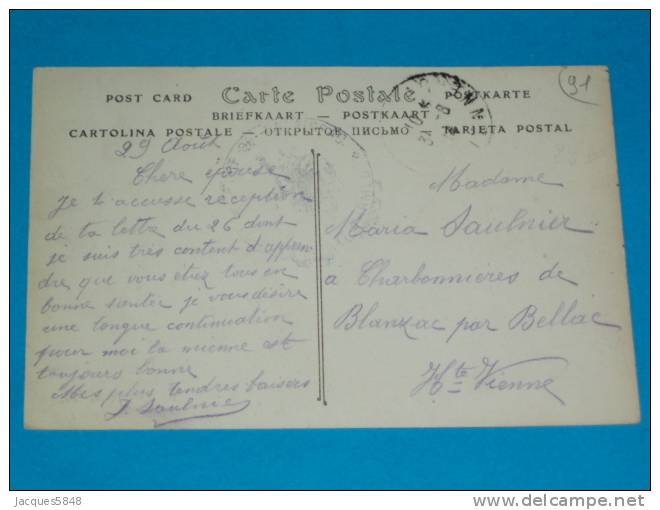 91
POST CARD Carte Postale POSTKARTE
BRIEFKAART — POSTKAART
CARTOLINA POSTALE — ОТКРЫТОЕ ПИСЬМО — TARJETA POSTAL
29 Août
Chere épouse
Je t'accusse réception
de ta lettre du 26 dont
je suis tres content d'appren
dre que vous étiez tous en
bonne santée je vous désire
une longue continuation
pour moi la mienne est
toujours bonne
Mes plus tendres baisers
Saulnier
Madame
Maria Saulnier
a Charbonnieres de
Blanzac par Bellac
Hte Vienne
Jacques5848
delcampe.net